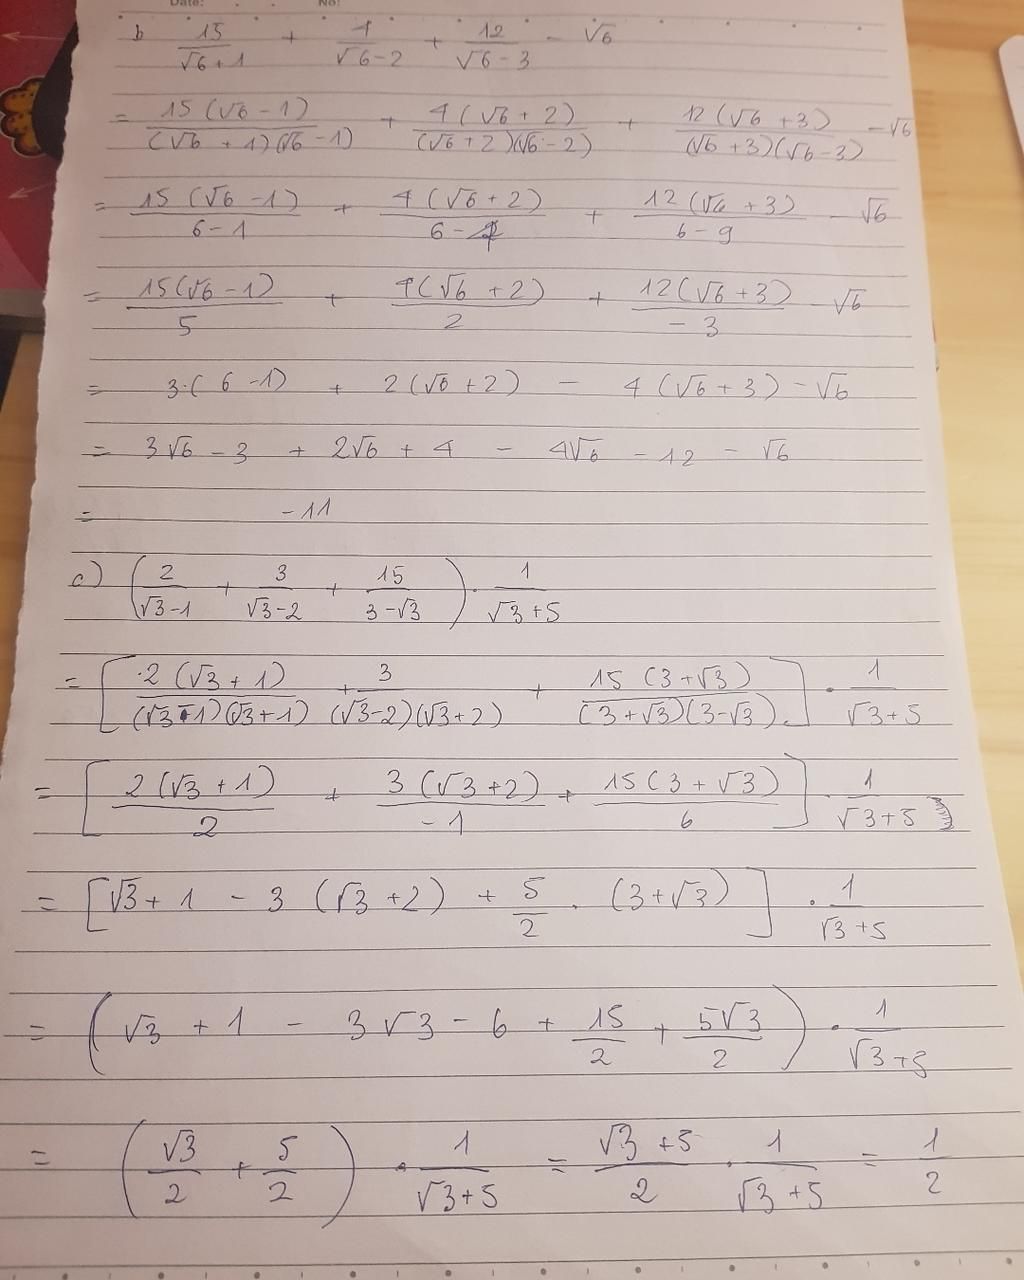 Date: No:
b 15/(√6+1) + 4/(√6-2) + 12/(√6-3) - √6
= 15(√6-1)/((√6+1)(√6-1)) + 4(√6+2)/((√6+2)(√6-2)) + 12(√6+3)/((√6+3)(√6-3)) - √6
= 15(√6-1)/(6-1) + 4(√6+2)/(6-4) + 12(√6+3)/(6-9) - √6
= 15(√6-1)/5 + 4(√6+2)/2 + 12(√6+3)/-3 - √6
= 3·(6-1) + 2(√6+2) - 4(√6+3) - √6
= 3√6-3 + 2√6+4 - 4√6 - 12 - √6
= -11
c) (2/(√3-1) + 3/(√3-2) + 15/(3-√3)) · 1/(√3+5)
= [2(√3+1)/((√3-1)(√3+1)) + 3/((√3-2)(√3+2)) + 15(3+√3)/((3+√3)(3-√3))] · 1/(√3+5)
= [2(√3+1)/2 + 3(√3+2)/-1 + 15(3+√3)/6] · 1/(√3+5)
= [√3+1 - 3(√3+2) + 5/2 · (3+√3)] · 1/(√3+5)
= (√3+1 - 3√3 - 6 + 15/2 + 5√3/2) · 1/(√3+5)
= (√3/2 + 5/2) · 1/(√3+5) = (√3+5)/2 · 1/(√3+5) = 1/2